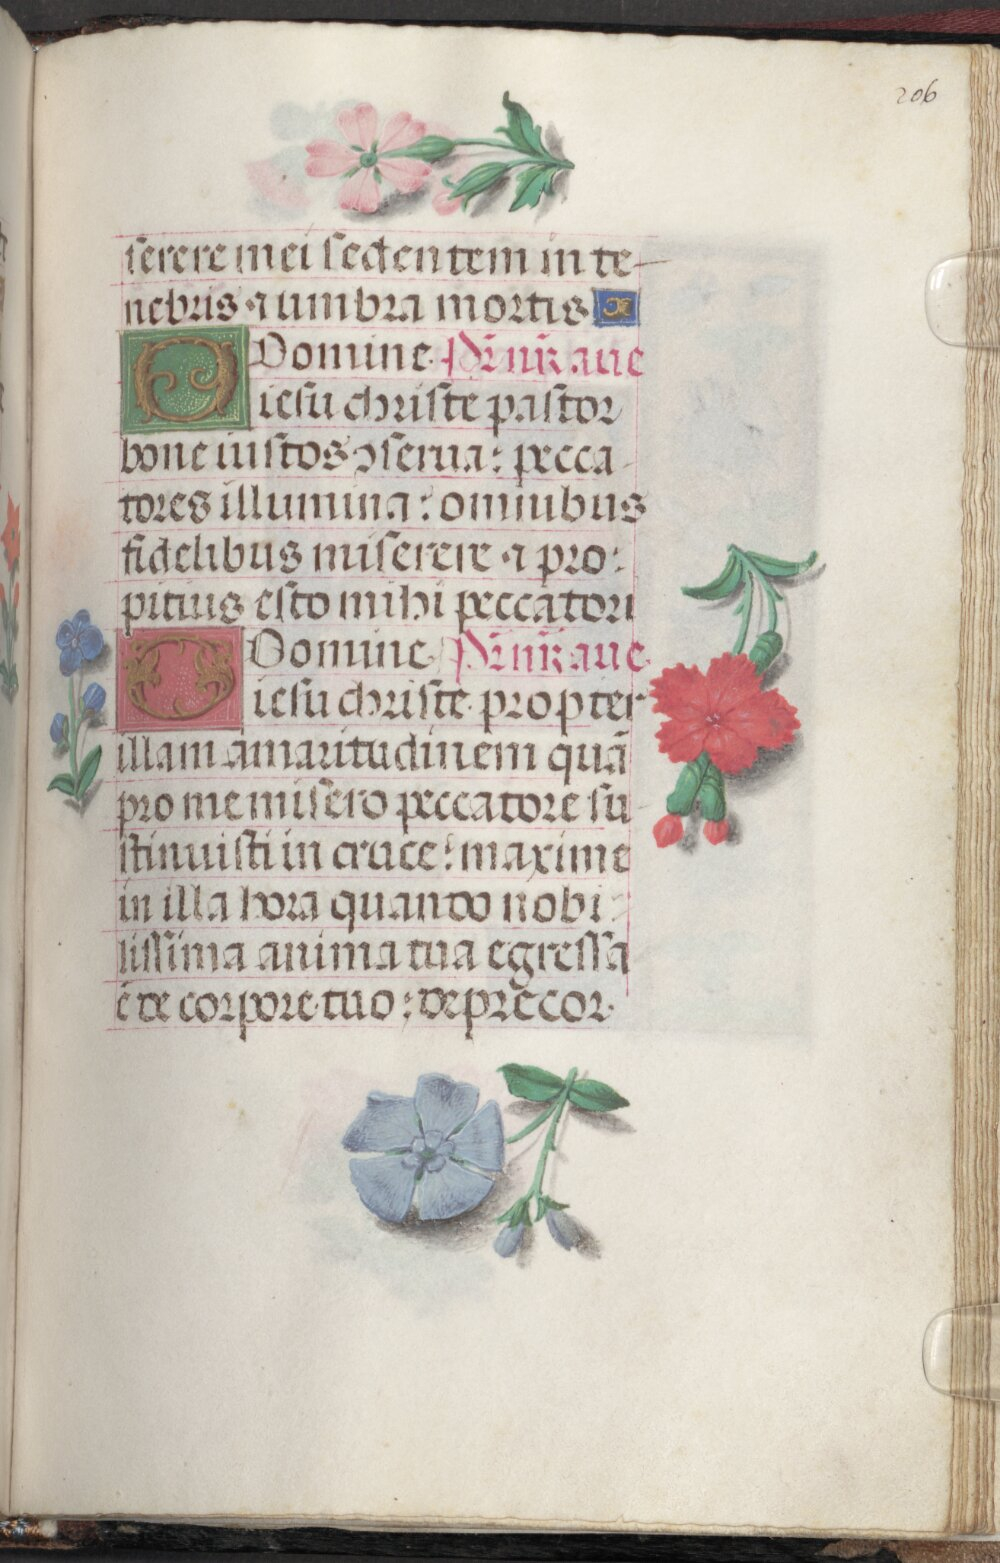 206
serere mei sedentem in te
nebris ⁊ umbra mortis
O Domine. Pr̄ nr̄ aue
iesu christe pastor
bone iustos ↄserua: pecca
tores illumina: omnibus
fidelibus miserere ⁊ pro:
pitius esto mihi peccatori
O Domine. Pr̄ nr̄ aue
iesu christe propter
illam amaritudinem quā
pro me misero peccatore su
stinuisti in cruce: maxime
in illa hora quando nobi
lissima anima tua egressa
ē de corpore tuo: deprecor.